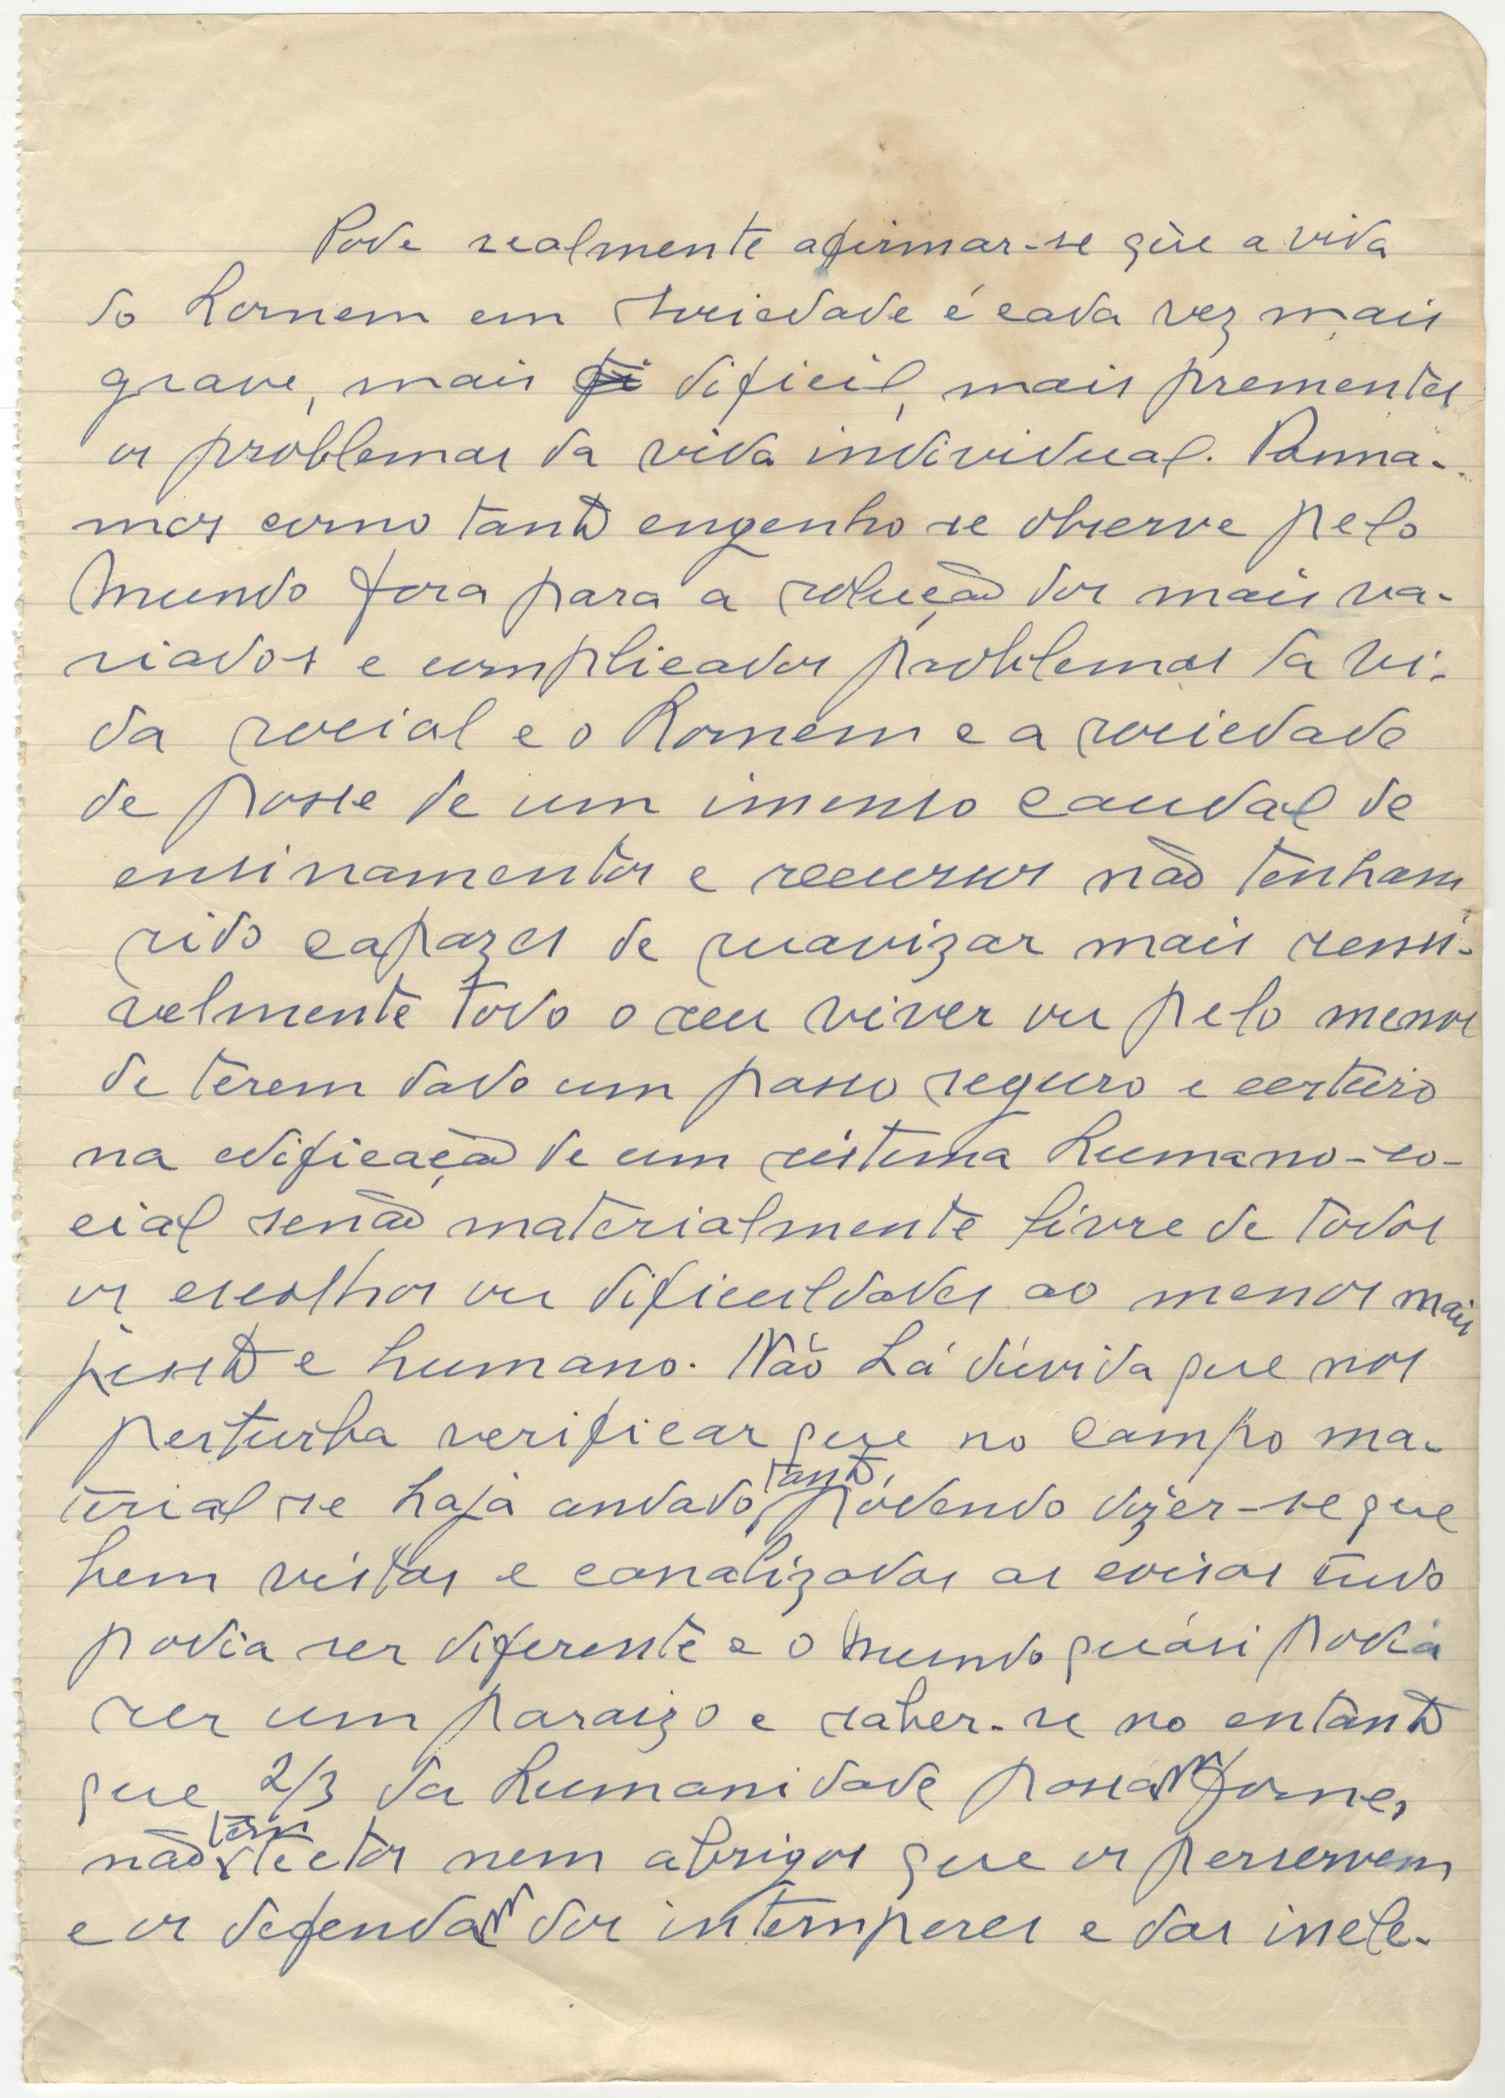 Pode realmente afirmar-se que a vida
do homem em sociedade é cada vez mais
grave, mais difícil, mais prementes
os problemas da vida individual. Pasma-
mos como tanto engenho se observe pelo
Mundo fora para a solução dos mais va-
riados e complicados problemas da vi-
da social e o Homem e a sociedade
de posse de um imenso caudal de
ensinamentos e recursos não tenham
sido capazes de suavizar mais sensi-
velmente todo o seu viver ou pelo menos
de terem dado um passo seguro e certeiro
na edificação de um sistema humano-so-
cial senão materialmente livre de todos
os escolhos ou dificuldades ao menos mais
justo e humano. Não há dúvida que nos
perturba verificar que no campo ma-
terial se haja andado tanto, podendo dizer-se que
bem vistas e canalizadas as coisas tudo
podia ser diferente e o Mundo quási podia
ser um paraizo e saber-se no entanto
que 2/3 da humanidade passam fome,
não tem tectos nem abrigos que os perservem
e os defendam dos intemperes e das incle-